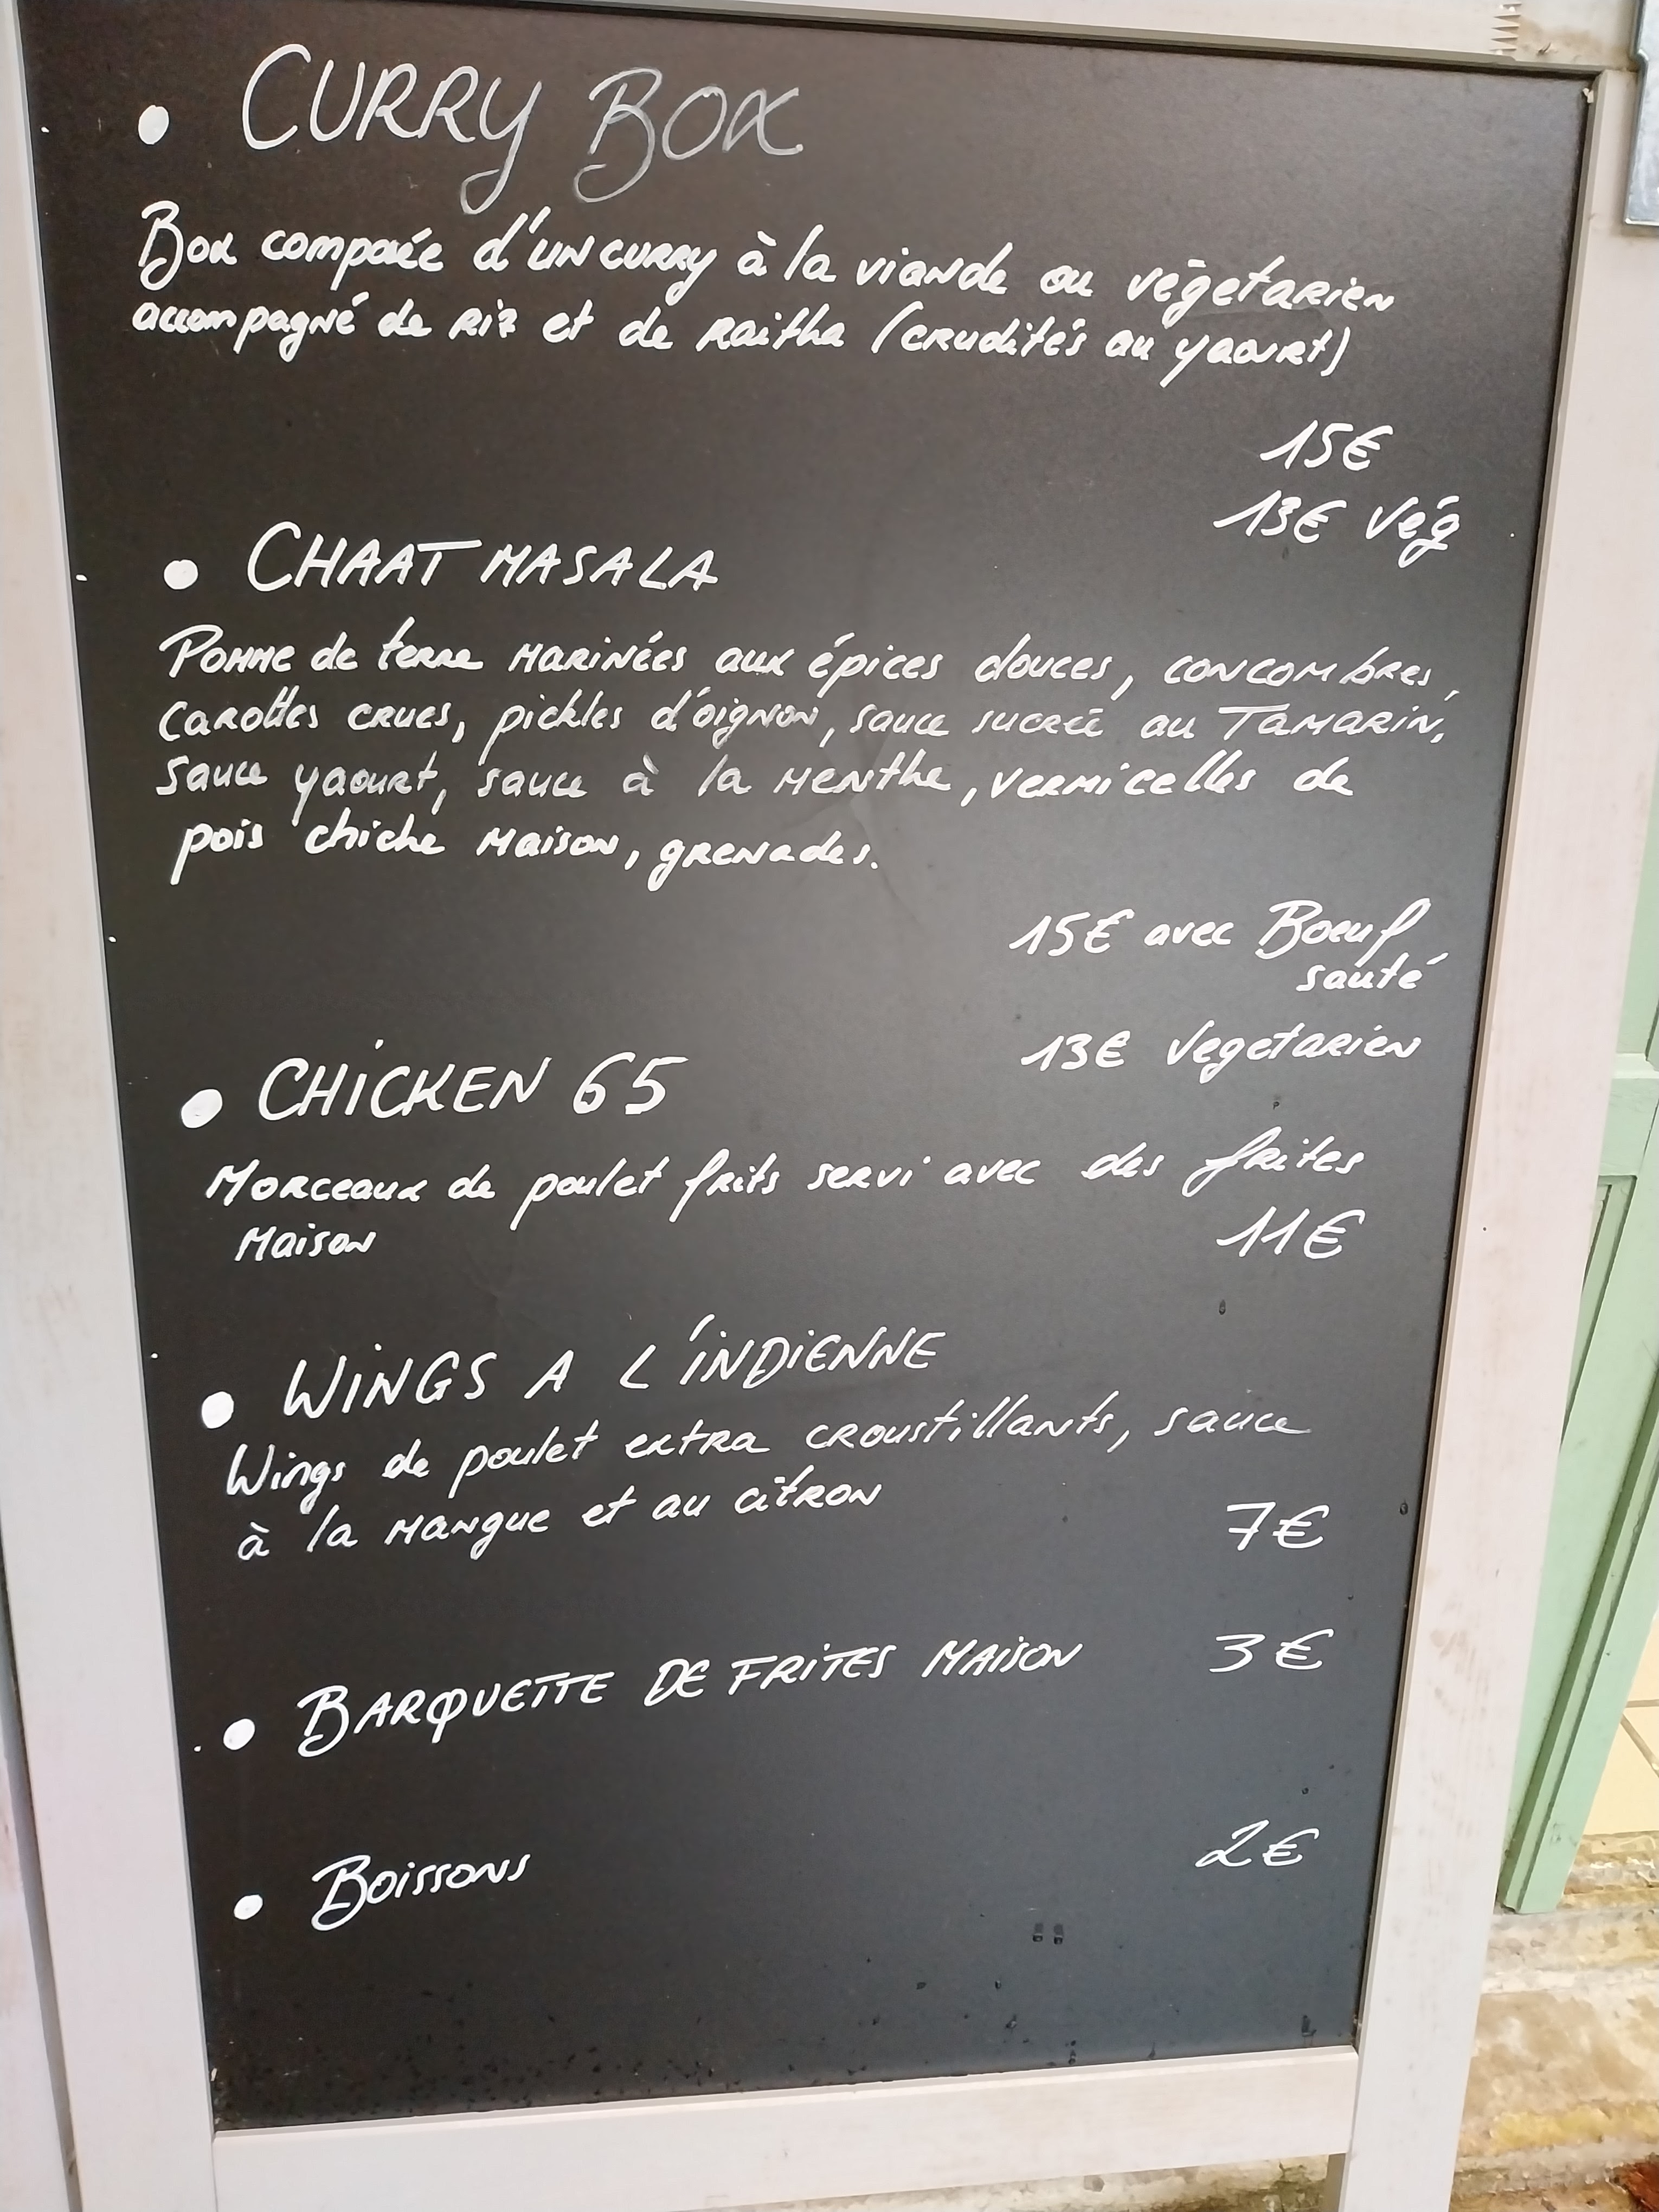 • CURRY BOX
Box composée d'un curry à la viande ou végetarien
accompagné de riz et de raitha (crudités au yaourt)
15€
13€ Vég
• CHAAT MASALA
Pomme de terre marinées aux épices douces, concombres,
carottes crues, pickles d'oignon, sauce sucrée au Tamarin,
sauce yaourt, sauce à la menthe, vermicelles de
pois chiche maison, grenades.
15€ avec Boeuf
sauté
13€ Vegetarien
• CHICKEN 65
Morceaux de poulet frits servi avec des frites
maison 11€
• WINGS A L'INDIENNE
Wings de poulet extra croustillants, sauce
à la mangue et au citron
7€
• BARQUETTE DE FRITES MAISON 3€
• Boissons 2€